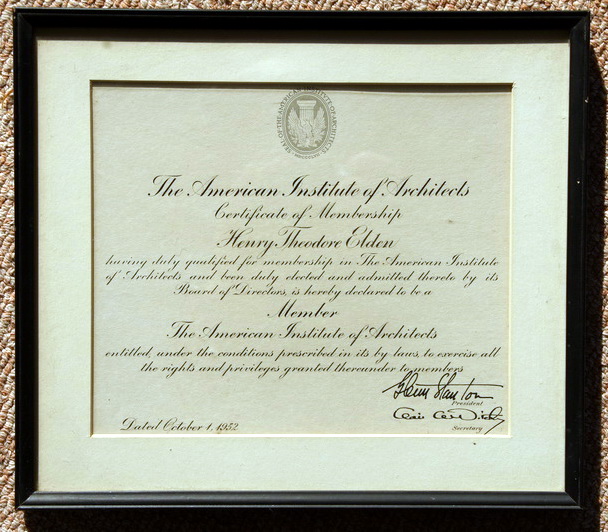 SEAL OF THE AMERICAN INSTITUTE OF ARCHITECTS
The American Institute of Architects
Certificate of Membership
Henry Theodore Eldon
having duly qualified for membership in The American Institute
of Architects and been duly elected and admitted thereto by its
Board of Directors, is hereby declared to be a
Member
The American Institute of Architects
entitled, under the conditions prescribed in its by-laws, to exercise all
the rights and privileges granted thereunder to members
Glenn Stanton
President
Secretary
Dated October 1, 1952